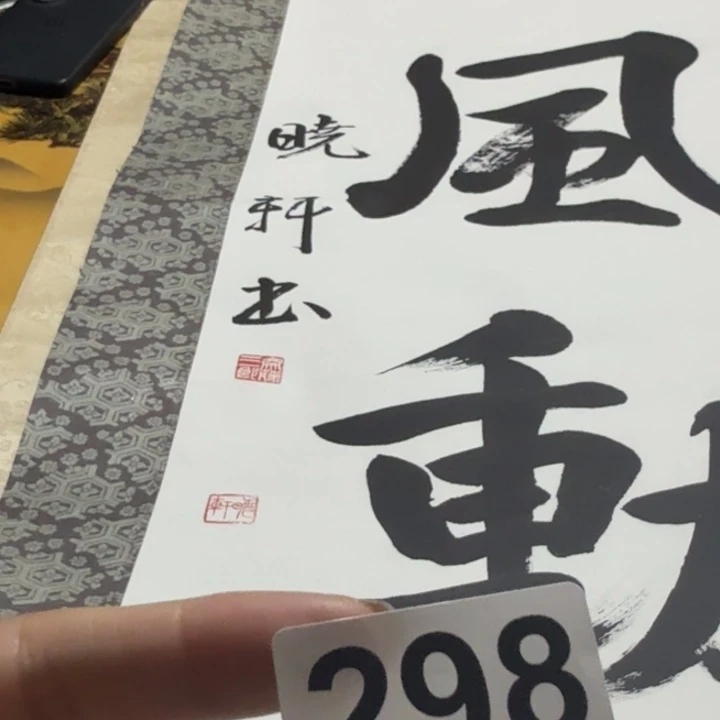 風動
晓軒书
298